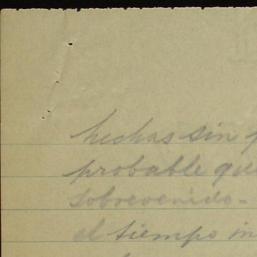 hechas sin
probable que
sobrevenido-
el tiempo in